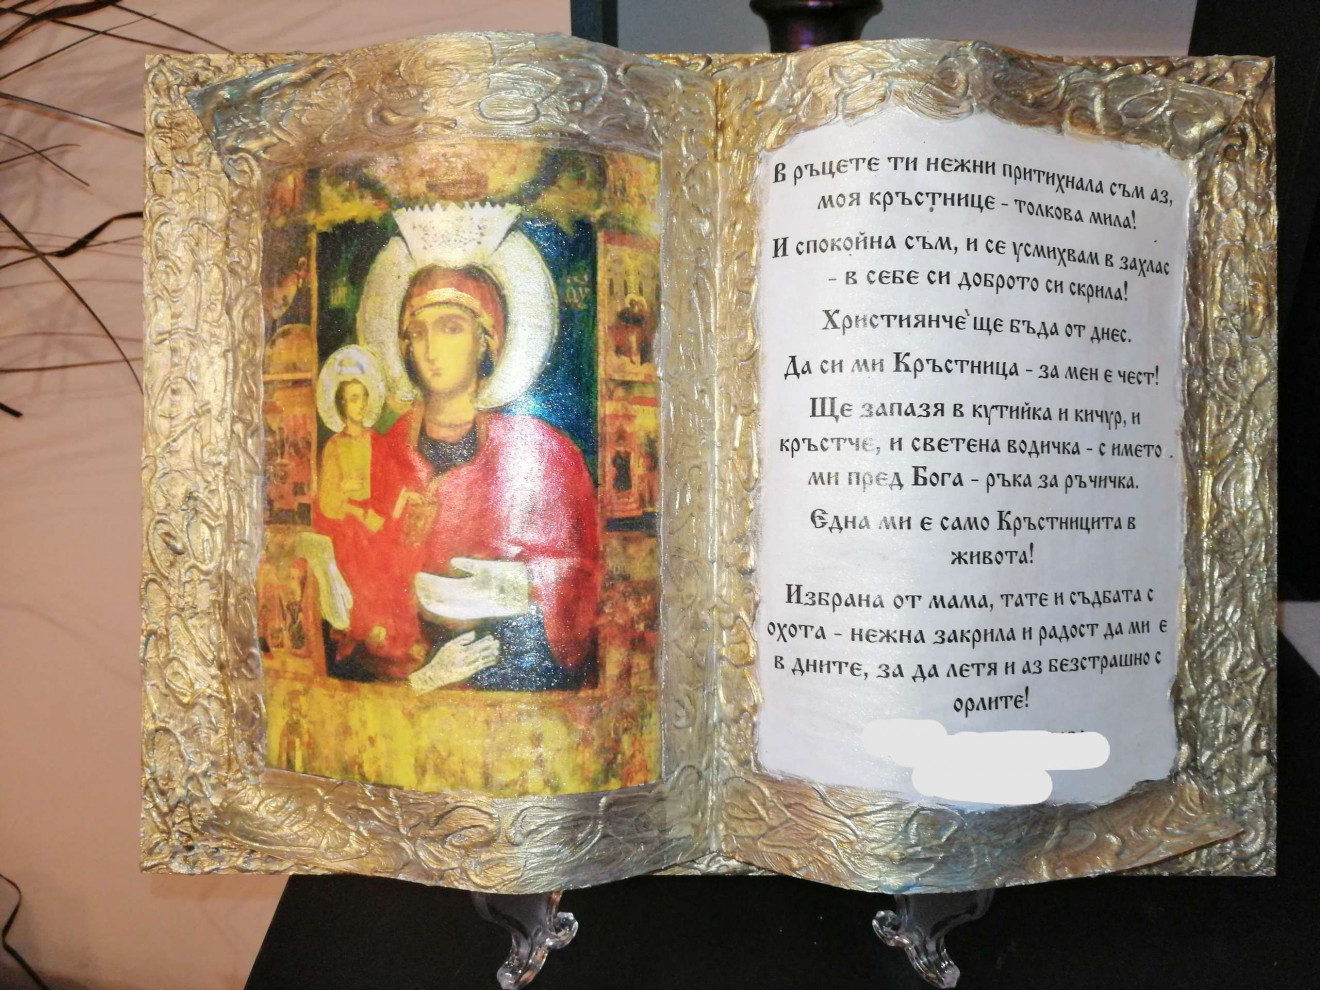 В ръцете ти нежни притихнала съм аз,
моя кръстнице - толкова мила!
И спокойна съм, и се усмихвам в захлас
- в себе си доброто си скрила!
Християнче ще бъда от днес.
Да си ми Кръстница - за мен е чест!
Ще запазя в кутийка и кичур, и
кръстче, и светена водичка - с името
ми пред Бога - ръка за ръчичка.
Една ми е само Кръстницита в
живота!
Избрана от мама, тате и съдбата с
охота - нежна закрила и радост да ми е
в дните, за да летя и аз безстрашно с
орлите!